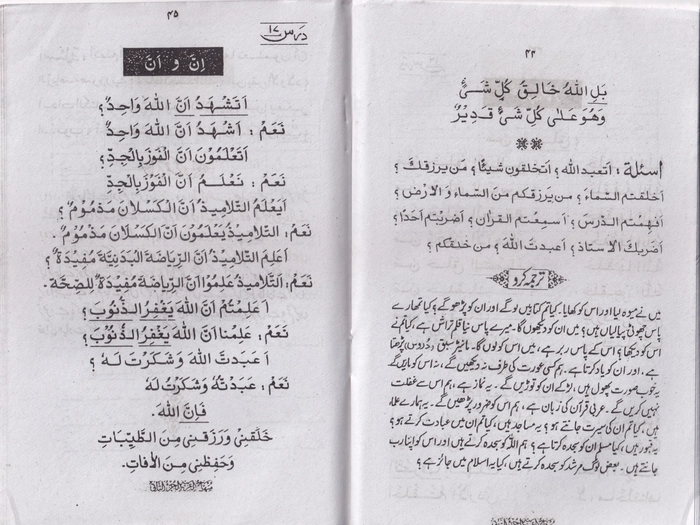 ٤٤
بَلِ اللهُ خَالِقُ كُلِّ شَیْءٍ
وَهُوَ عَلٰی كُلِّ شَیْءٍ قَدِیْرٌ
اسئلة : أتعبد الله ؟ أتخلقون شیئًا ؟ من یرزقك ؟
أخلقتم السّماء ؟ من یرزقكم من السّماء والأرض ؟
أفهمتم الدّرس ؟ أسمعتم القرآن ؟ أضربتم أحدًا ؟
أضربك الأستاذ ؟ أعبدت الله ؟ من خلقكم ؟
ترجمہ کرو
میں نے میوہ لیا اور اس کو کھایا۔ کیا تم کتابیں لو گے اور ان کو پڑھو گے؟ کیا تمہارے
پاس چھوٹی پیالیاں ہیں؟ میں ان کو دیکھوں گا۔ میرے پاس نیا قلم تراش ہے، کیا تم نے
اس کو دیکھا؟ اس کے پاس ربر ہے، میں اس کو لوں گا۔ مانیٹر سبق (دروس) پڑھتا
ہے، اور ان کو یاد کرتا ہے۔ ہم کسی عورت کی طرف نہ دیکھیں گے، نہ اس کو ماریں گے
یہ خوب صورت پھول ہیں، لڑکے ان کو توڑیں گے۔ یہ نماز ہے، ہم اس سے غفلت
نہیں کریں گے۔ عربی قرآن کی زبان ہے، ہم اس کو ضرور پڑھیں گے۔ یہ ہمارے علماء
ہیں، کیا تم ان کی سیرت جانتے ہو؟ یہ مساجد ہیں، کیا تم ان میں عبادت کرتے ہو؟
یہ قبور ہیں، کیا مسلمان ان کو سجدہ کرتا ہے؟ ہم اللہ کو سجدہ کرتے ہیں اور اس کو اپنا رب
جانتے ہیں۔ بعض لوگ مرشد کو سجدہ کرتے ہیں، کیا یہ اسلام میں جائز ہے؟
٤٥
درس ١٧
اِنَّ وَ اَنَّ
اَتَشْهَدُ اَنَّ اللهَ وَاحِدٌ ؟
نَعَمْ : اَشْهَدُ اَنَّ اللهَ وَاحِدٌ
اَتَعْلَمُوْنَ اَنَّ الْفَوْزَ بِالْجِدِّ ؟
نَعَمْ : نَعْلَمُ اَنَّ الْفَوْزَ بِالْجِدِّ
اَیَعْلَمُ التَّلَامِیْذُ اَنَّ الْكَسْلَانَ مَذْمُوْمٌ ؟
نَعَمْ : التَّلَامِیْذُ یَعْلَمُوْنَ اَنَّ الْكَسْلَانَ مَذْمُوْمٌ .
اَعَلِمَ التَّلَامِیْذُ اَنَّ الرِّیَاضَةَ الْبَدَنِیَّةَ مُفِیْدَةٌ ؟
نَعَمْ : التَّلَامِیْذُ عَلِمُوْا اَنَّ الرِّیَاضَةَ مُفِیْدَةٌ لِلصِّحَّةِ .
اَعَلِمْتُمْ اَنَّ اللهَ یَغْفِرُ الذُّنُوْبَ ؟
نَعَمْ : عَلِمْنَا اَنَّ اللهَ یَغْفِرُ الذُّنُوْبَ ؟
اَعَبَدْتَّ اللهَ وَشَكَرْتَ لَهُ ؟
نَعَمْ : عَبَدْتُهُ وَشَكَرْتُ لَهُ
فَاِنَّ اللهَ .
خَلَقَنِیْ وَرَزَقَنِیْ مِنَ الطَّیِّبَاتِ
وَحَفِظَنِیْ مِنَ الْاٰفَاتِ .